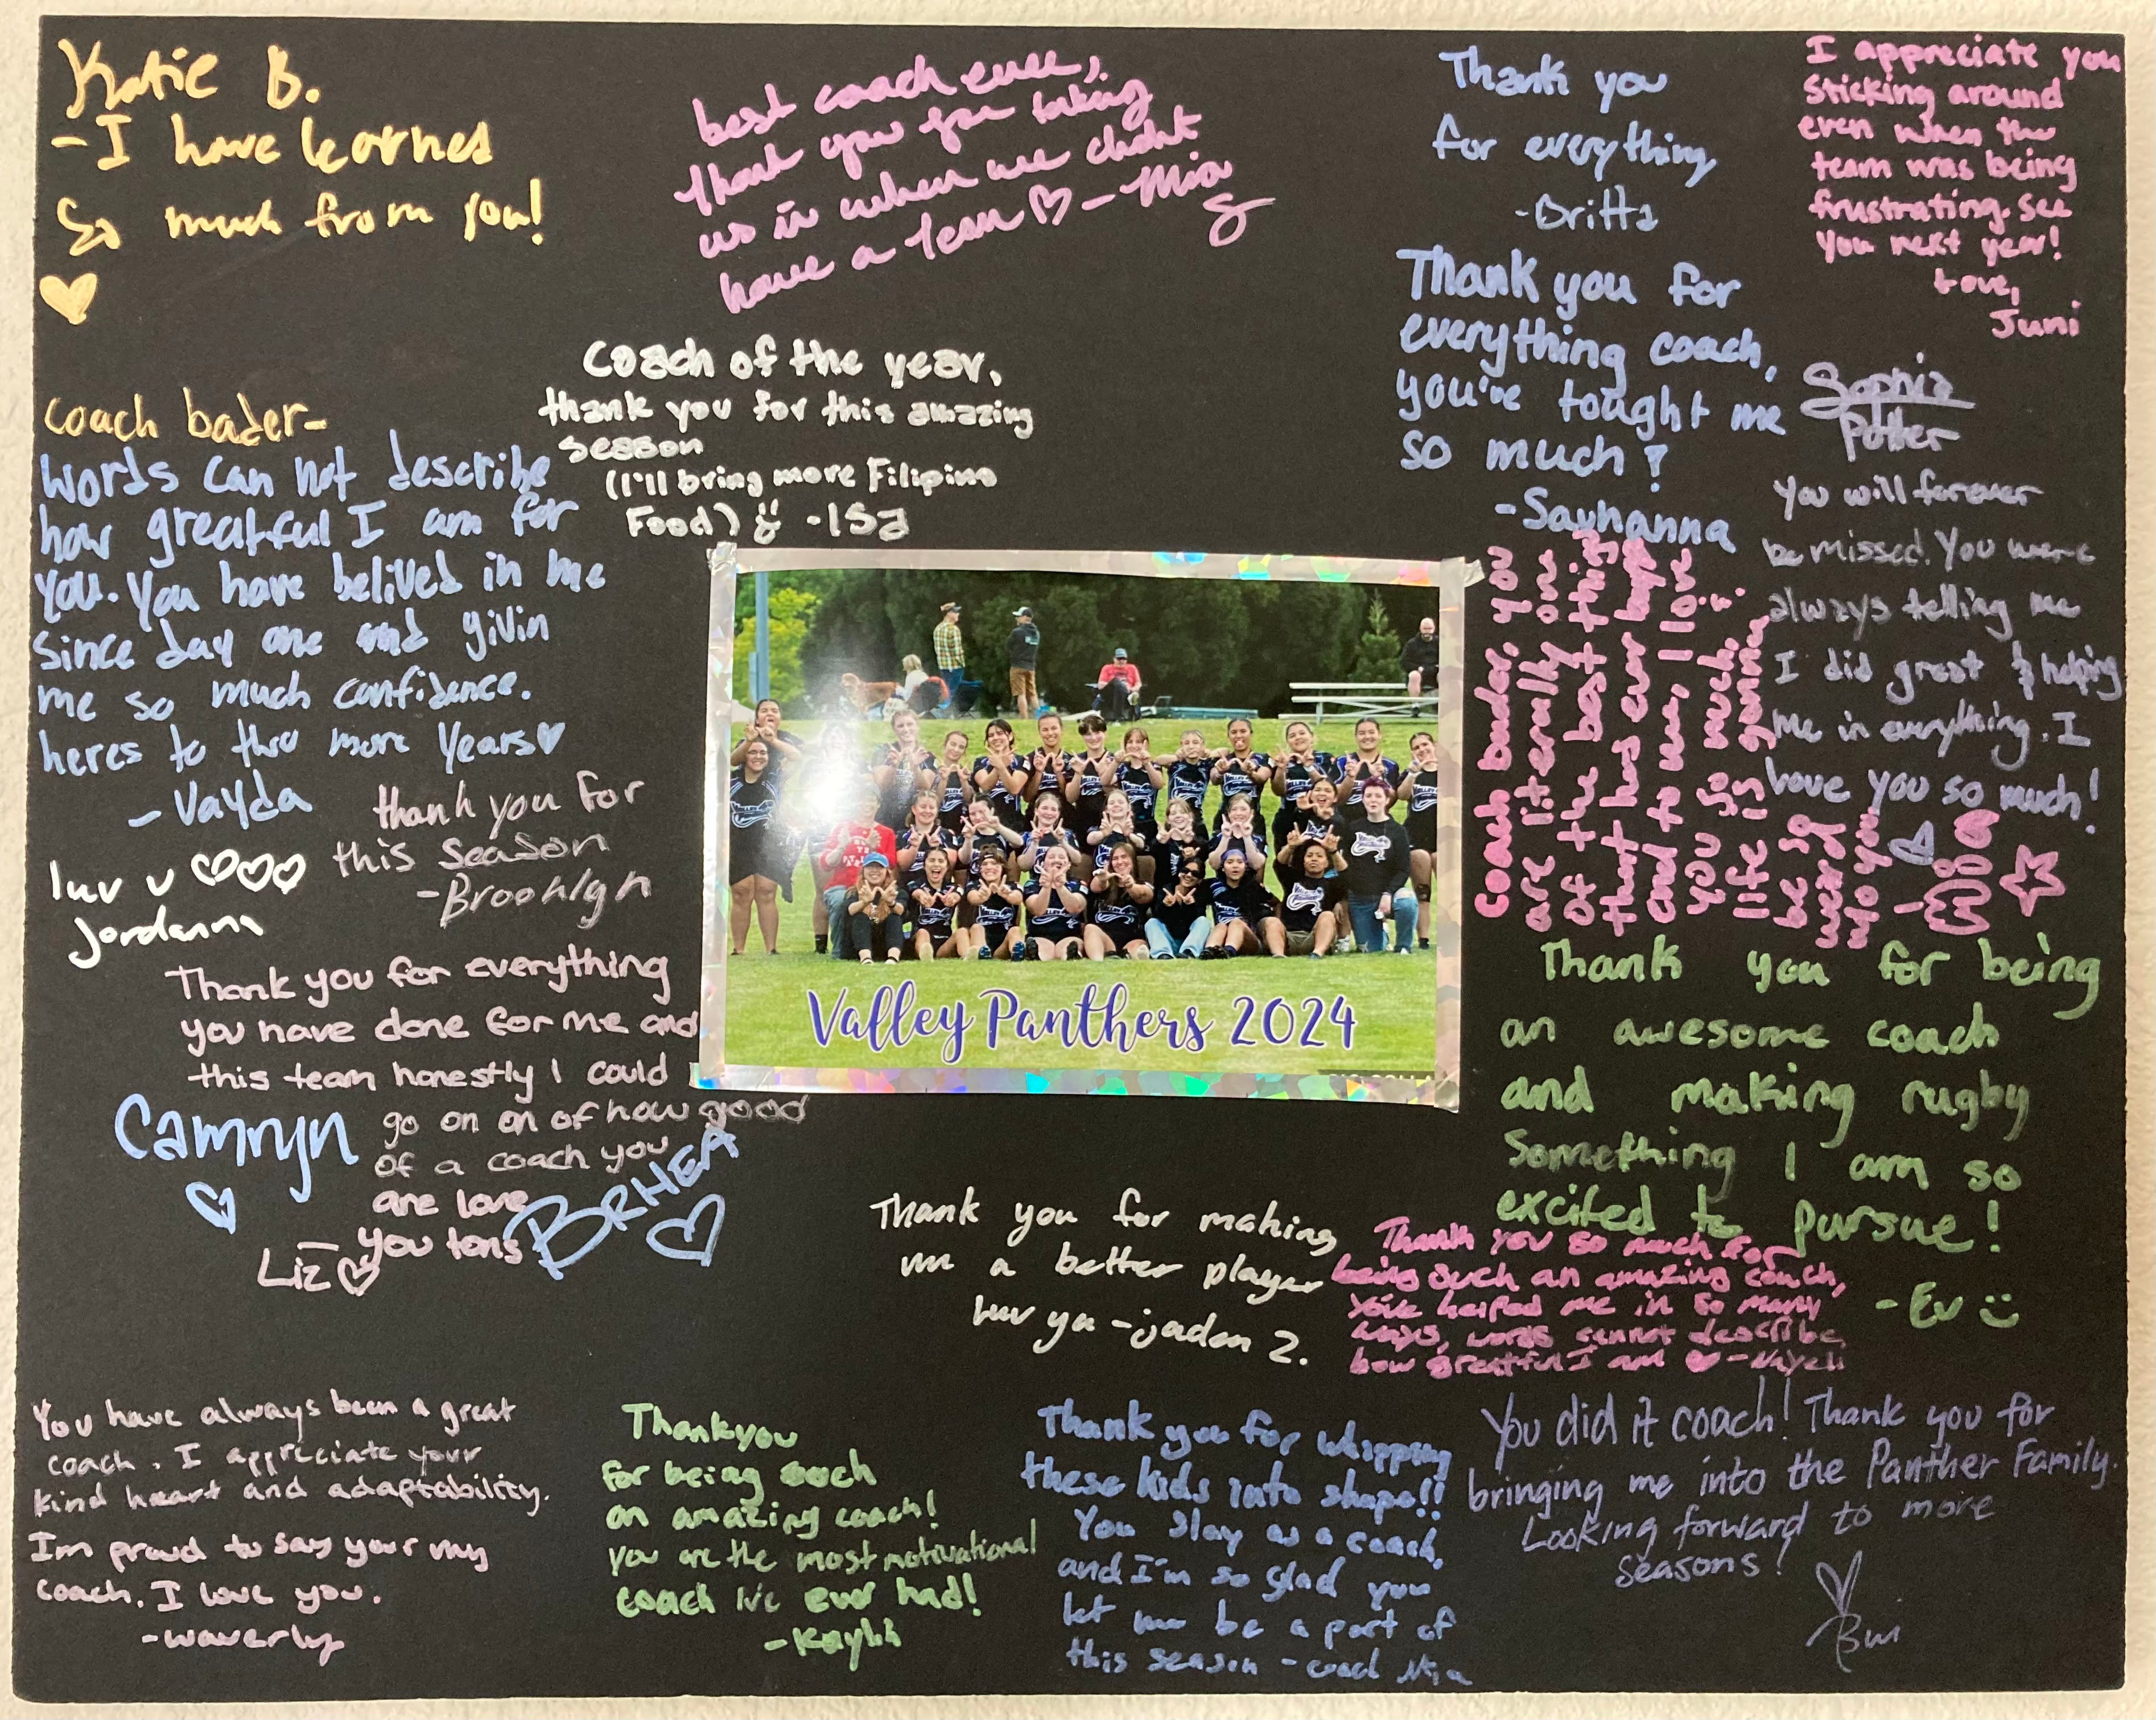 Katie B.
- I have learned
so much from you!
best coach ever,
thank you for taking
us in when we didnt
have a team - Mia
S
Thank you
for everything
-Dritta
I appreciate you
sticking around
even when the
team was being
frustrating. see
you next year!
Love,
Juni
Coach of the year,
thank you for this amazing
season
(I'll bring more Filipino
Food) -ISa
Thank you for
everything coach,
you've tought me
so much!
-Savhanna
Sophia
Potter
You will forever
be missed. You were
always telling me
I did great & helping
me in everything. I
Love you so much!
coach bader-
words can not describe
how greatful I am for
you. You have belived in me
since day one and givin
me so much confidence.
heres to thre more years
- Vayda
Coach bader, you
are literally one
of the best things
that has ever
and to
you so much,
life is gonna
be so
weird
w/o you
thank you for
this season
-Brooklyn
luv u
Jordanna
Thank you for everything
you have done for me and
this team honestly I could
go on on of how good
of a coach you
are love
you tons
Liz
Camryn
BRHEA
Valley Panthers 2024
Thank you for being
an awesome coach
and making rugby
something I am so
excited to pursue!
- Ev
Thank you for making
me a better player
luv ya - jaden Z.
Thank you so much for
being such an amazing coach,
you've helped me in so many
ways, words cannot describe
how greatful I am - Nayeli
You have always been a great
coach. I appreciate your
kind heart and adaptability.
Im proud to say your my
coach. I love you.
-waverly
Thankyou
for being such
an amazing coach!
you are the most motivational
coach ive ever had!
-Kaylii
Thank you for whipping
these kids into shape!!
You slay as a coach,
and I'm so glad you
let me be a part of
this season - coach Mia
You did it coach! Thank you for
bringing me into the Panther Family.
Looking forward to more
seasons!